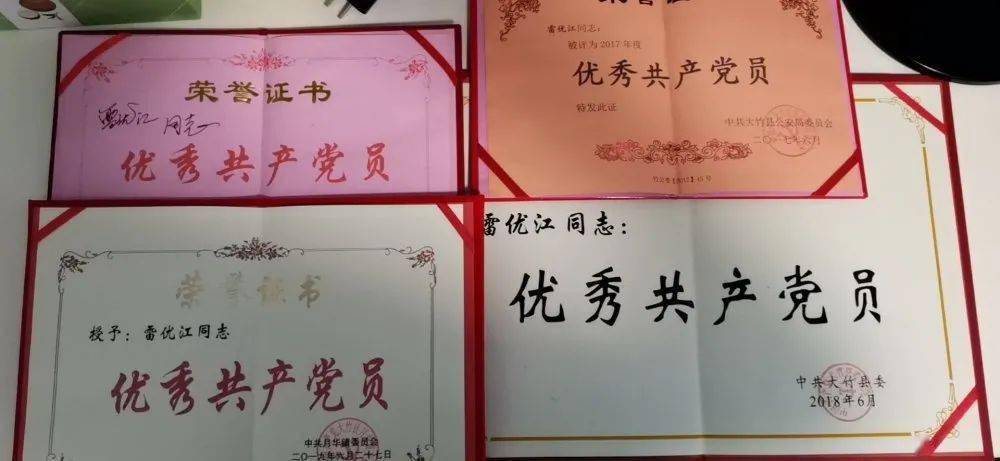 荣誉证书
雷优江 同志
优秀共产党员
荣誉证
雷优江同志:
被评为2017年度
优秀共产党员
特发此证
中共大竹县公安局委员会
二〇一七年六月
荣誉证书
授予：雷优江同志
优秀共产党员
中共月华镇委员会
雷优江同志：
优秀共产党员
中共大竹县委
2018年6月